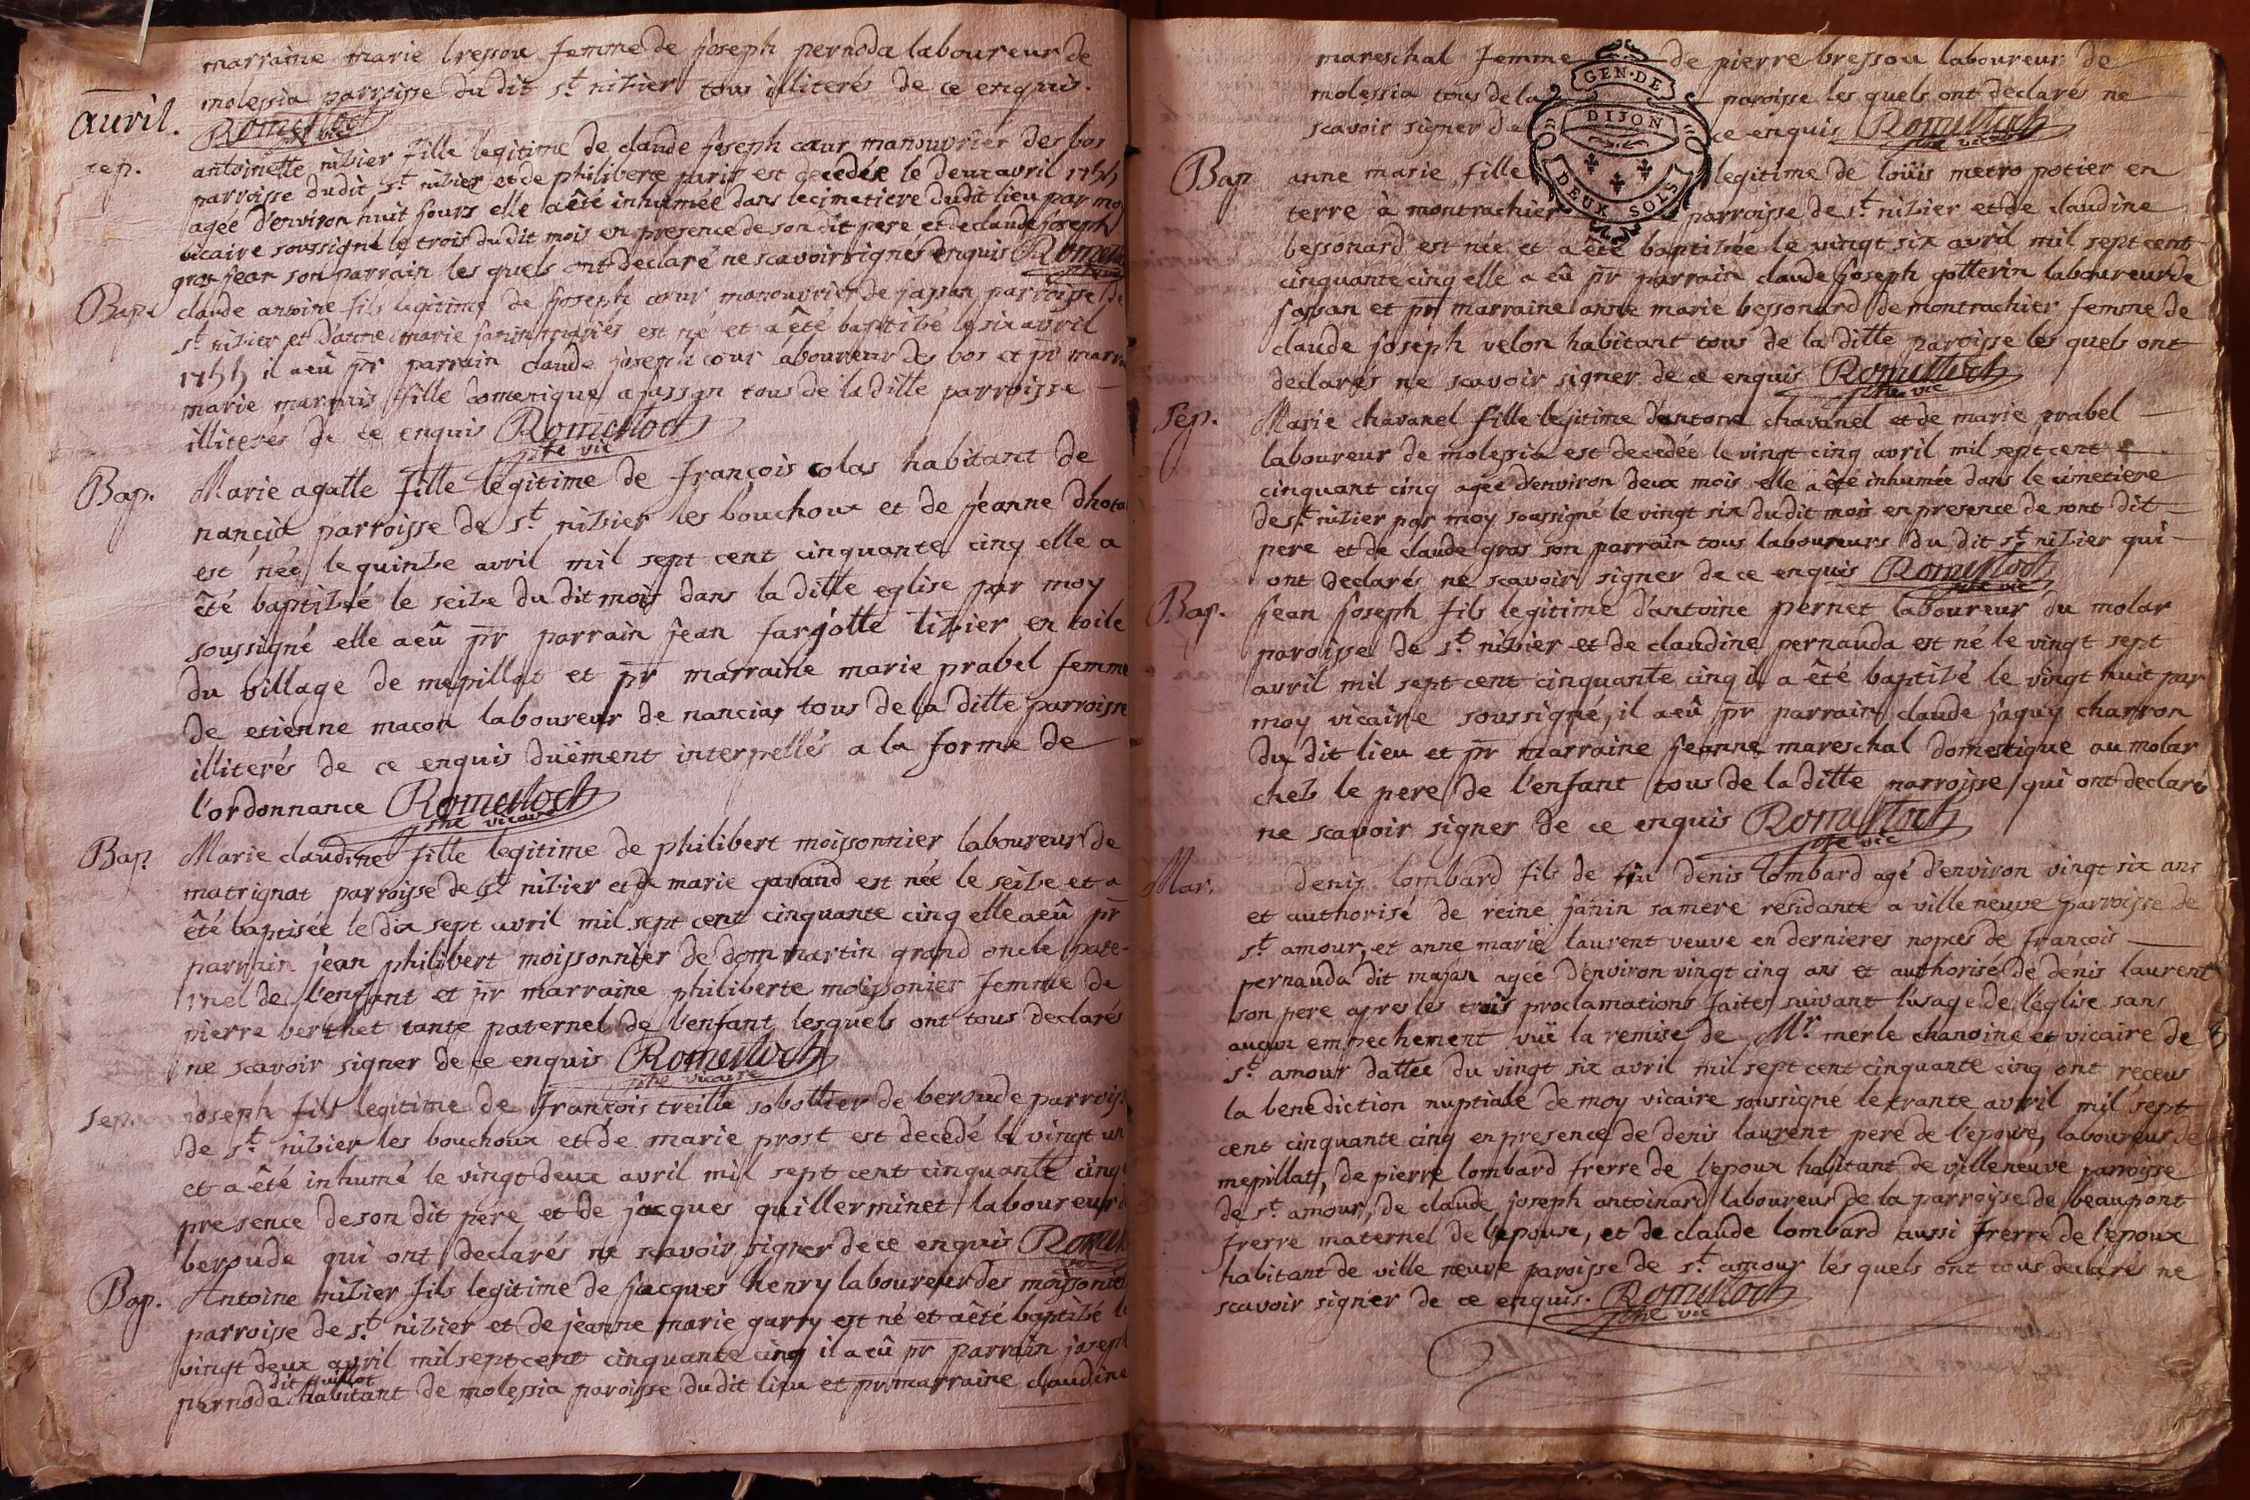 marraine marie bressou femme de joseph pernoda laboureur de
molessia parroisse du dit st nizier tous illiterés de ce enquis.
auril.
Romestoch
ptre vic
sep. antoinette nizier fille legitime de claude joseph cœur manouvrier des bos
parroisse du dit st nizier et de philiberte paris est decedée le deux avril 1755
agée d'environ huit jours elle a êté inhumée dans le cimetiere du dit lieu par mo
vicaire soussigné le trois du dit mois en presence de son dit pere et de claude joseph
gros jean son parrain les quels ont declaré ne scavoir signer enquis Romes
Bap. claude antoine fils legitime de joseph cœur manouvrier de jassan parroisse de
st nizier et d'anne marie janin mariés est né et a êté baptizé le six avril
1755 il a eû pr parrain claude joseph cœur laboureur des bos et pr marr
marie marquis fille domestique a jassan tous de la ditte parroisse
illiterés de ce enquis Romestoch
ptre vic
Bap. Marie agatte fille legitime de françois colas habitant de
nancia parroisse de st nizier les bouchoux et de jeanne dhoto
est née le quinze avril mil sept cent cinquante cinq elle a
êté baptizée le seize du dit mois dans la ditte eglise par moy
soussigné elle a eû pr parrain jean farjotte tizier en toile
du village de mepillat et pr marraine marie prabel femme
de etienne macon laboureur de nancia tous de la ditte parroisse
illiterés de ce enquis düement interpellés a la forme de
l'ordonnance Romestoch
ptre vicaire
Bap. Marie claudine fille legitime de philibert moissonnier laboureur de
matrignat parroisse de st nizier et de marie gavand est née le seize et a
êté baptisée le dix sept avril mil sept cent cinquante cinq elle a eû pr
parrain jean philibert moissonnier de dommartin grand oncle pate-
rnel de l'enfant et pr marraine philiberte moissonier femme de
pierre verthet tante paternel de l'enfant lesquels ont tous declarés
ne scavoir signer de ce enquis Romestoch
ptre vicaire
sep. joseph fils legitime de françois treille sabottier de beroude parrois
de st nizier les bouchoux et de marie prost est decedé le vingt un
et a êté inhumé le vingt deux avril mil sept cent cinquante cinq
presence de son dit pere et de jacques guillerminet laboureur
beroude qui ont declarés ne scavoir signer de ce enquis Romes
Bap. Antoine nizier fils legitime de jacques henry laboureur des moissonie
parroisse de st nizier et de jeanne marie garry est né et a êté baptizé le
vingt deux avril mil sept cent cinquante cinq il a eû pr parrain joseph
dit guillot
pernoda habitant de molessia paroisse du dit lieu et pr marraine claudine
mareschal femme de pierre bressou laboureur de
molessia tous de la paroisse les quels ont declarés ne
scavoir signer de ce enquis Romestoch
ptre vicaire
GEN · DE
DIJON
DEUX SOLS
Bap anne marie fille legitime de loüis metro potier en
terre à montrachier parroisse de st nizier et de claudine
bessonard est née et a êté baptizée le vingt six avril mil sept cent
cinquante cinq elle a eû pr parrain claude joseph gotterin laboureur de
jassan et pr marraine anne marie bessonard de montrachier femme de
claude joseph velon habitant tous de la ditte paroisse les quels ont
declarés ne scavoir signer de ce enquis Romestoch
ptre vic
Sep. Marie chavanel fille legitime d'antoine chavanel et de marie prabel
laboureur de molessia est decedée le vingt cinq avril mil sept cent
cinquant cinq agée d'environ deux mois elle a êté inhumée dans le cimetiere
de st nizier par moy soussigné le vingt six du dit mois en presence de sont dit
pere et de claude gros son parrain tous laboureurs du dit st nizier qui
ont declarés ne scavoir signer de ce enquis Romestoch
ptre vic
Bap. jean joseph fils legitime d'antoine pernet laboureur du molar
paroisse de st nizier et de claudine pernauda est né le vingt sept
avril mil sept cent cinquante cinq il a êté baptizé le vingt huit par
moy vicaire soussigné, il a eû pr parrain claude jaquy charron
du dit lieu et pr marraine jeanne mareschal domestique au molar
chez le pere de l'enfant tous de la ditte parroisse qui ont declarés
ne scavoir signer de ce enquis Romestoch
ptre vic
Mar. denis lombard fils de feu denis lombard agé d'environ vingt six ans
et authorisé de reine janin sa mere residante a ville neuve parroisse de
st amour, et anne marie laurent veuve en dernieres nopces de françois
pernauda dit majan agée d'environ vingt cinq ans et authorisé de denis laurent
son pere apres les trois proclamations faites suivant l'usage de l'eglise sans
aucun empechement vüe la remise de Mr merle chanoine et vicaire de
st amour dattée du vingt six avril mil sept cent cinquante cinq ont receus
la benediction nuptiale de moy vicaire soussigné le trante avril mil sept
cent cinquante cinq en presence de denis laurent pere de l'epouse, laboureur de
mepillat, de pierre lombard frerre de l'epoux habitant de villeneuve parroisse
de st amour, de claude joseph antoinard laboureur de la parroisse de beaupont
frerre maternel de l'epouse, et de claude lombard aussi frerre de l'epoux
habitant de ville neuve paroisse de st amour les quels ont tous declarés ne
scavoir signer de ce enquis. Romestoch
ptre vic